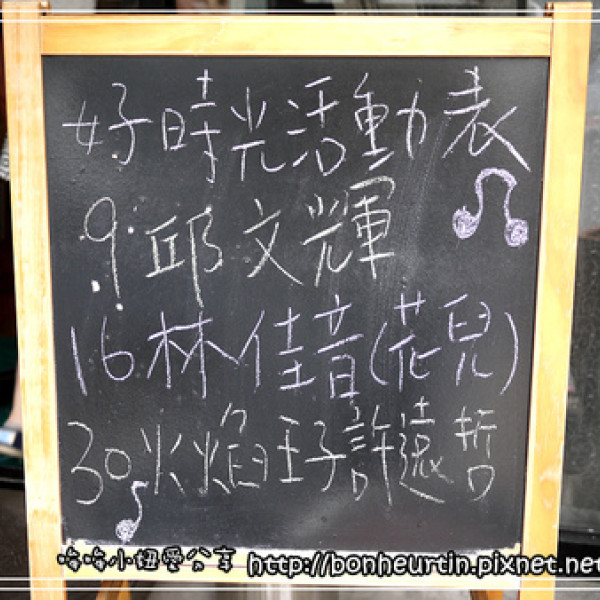 好時光活動表
9 邱文輝
16 林佳音(花兒)
30 火焰王子許遠哲
哈哈小妞愛分享 http://bonheurtin.pixnet.net